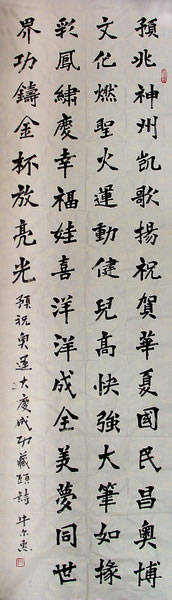 預兆神州凱歌揚祝賀華夏國民昌奧博
文化燃聖火運動健兒高快強大筆如椽
彩鳳繡慶幸福娃喜洋洋成全美夢同世
界功鑄金杯放亮光
預祝奧運大慶成功藏頤詩